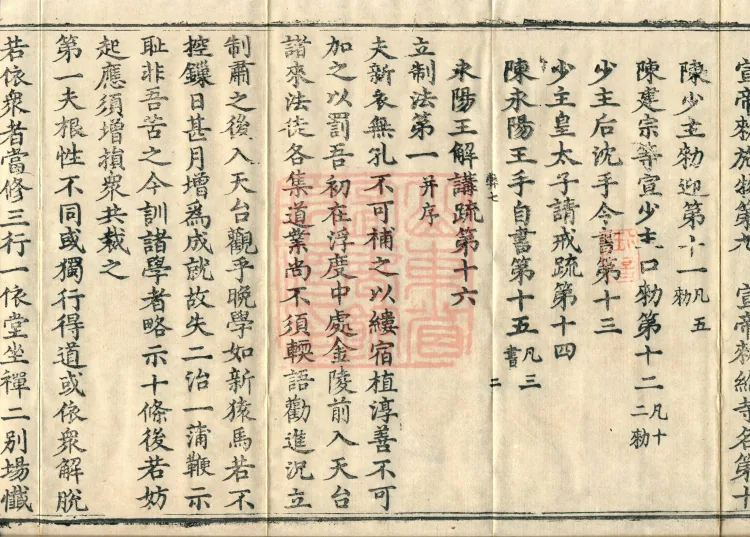 宣帝勑施物第九　宣帝勑給寺名第十
陳少主勑迎第十一凡五勑
陳建宗等宣少主口勑第十二凡十二勑
少主后沈手令書第十三
少主皇太子請戒疏第十四
陳永陽王手自書第十五凡三書
永陽王解講疏第十六
二
弊七
立制法第一并序
夫新衣無孔不可補之以縷宿植淳善不可
加之以罰吾初在浮度中處金陵前入天台
諸來法徒各集道業尚不須輭語勸進況立
制肅之後入天台觀乎晚學如新猿馬若不
控鏁日甚月增為成就故失二治一蒲鞭示
恥非吾苦之今訓諸學者略示十條後若妨
起應須增損衆共裁之
第一夫根性不同或獨行得道或依衆解脫
若依衆者當修三行一依堂坐禪二別場懺